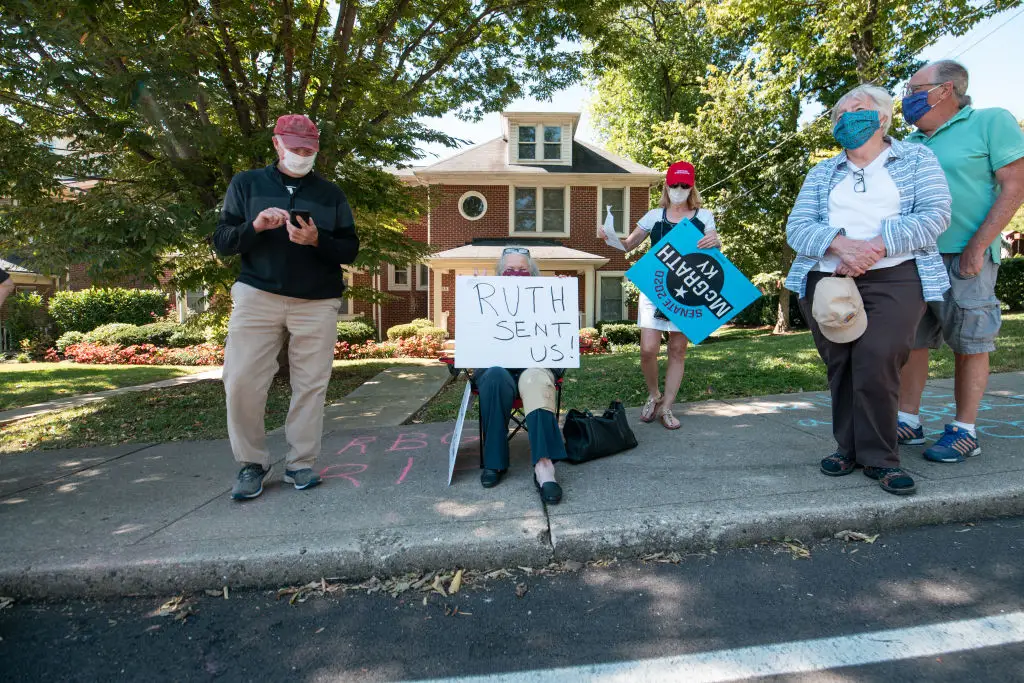 RUTH
SENT
US!
McGRATH
KY
SENATE 2020
RBG
RI